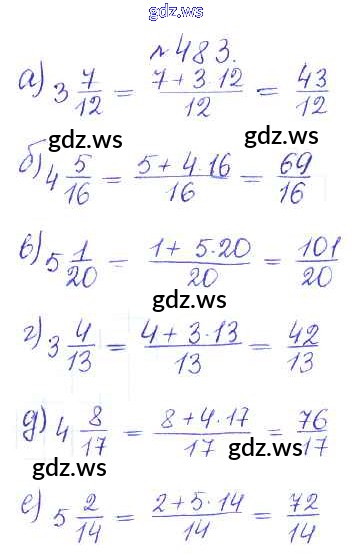 gdz.ws
№483.
а) 3 7/12 = 7+3·12/12 = 43/12
gdz.ws gdz.ws
б) 4 5/16 = 5+4·16/16 = 69/16
в) 5 1/20 = 1+5·20/20 = 101/20
gdz.ws
г) 3 4/13 = 4+3·13/13 = 42/13
д) 4 8/17 = 8+4·17/17 = 76/17
gdz.ws gdz.ws
е) 5 2/14 = 2+5·14/14 = 72/14
gdz.ws